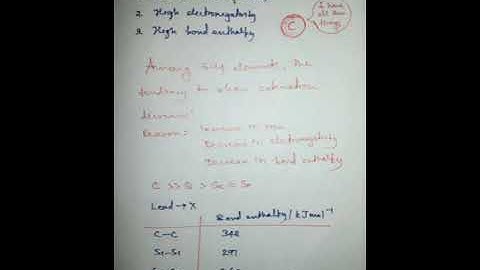 2. High electronegativity
3. High bond enthalpy
C
I have
all these
things
Among 14th elements, the
tendency to show catenation
decreases
Reason: Increase in size
Decrease in electronegativity
Decrease in bond enthalpy
Lead → X
Bond enthalpy (kJ mol)⁻¹
C—C 348
Si—Si 297